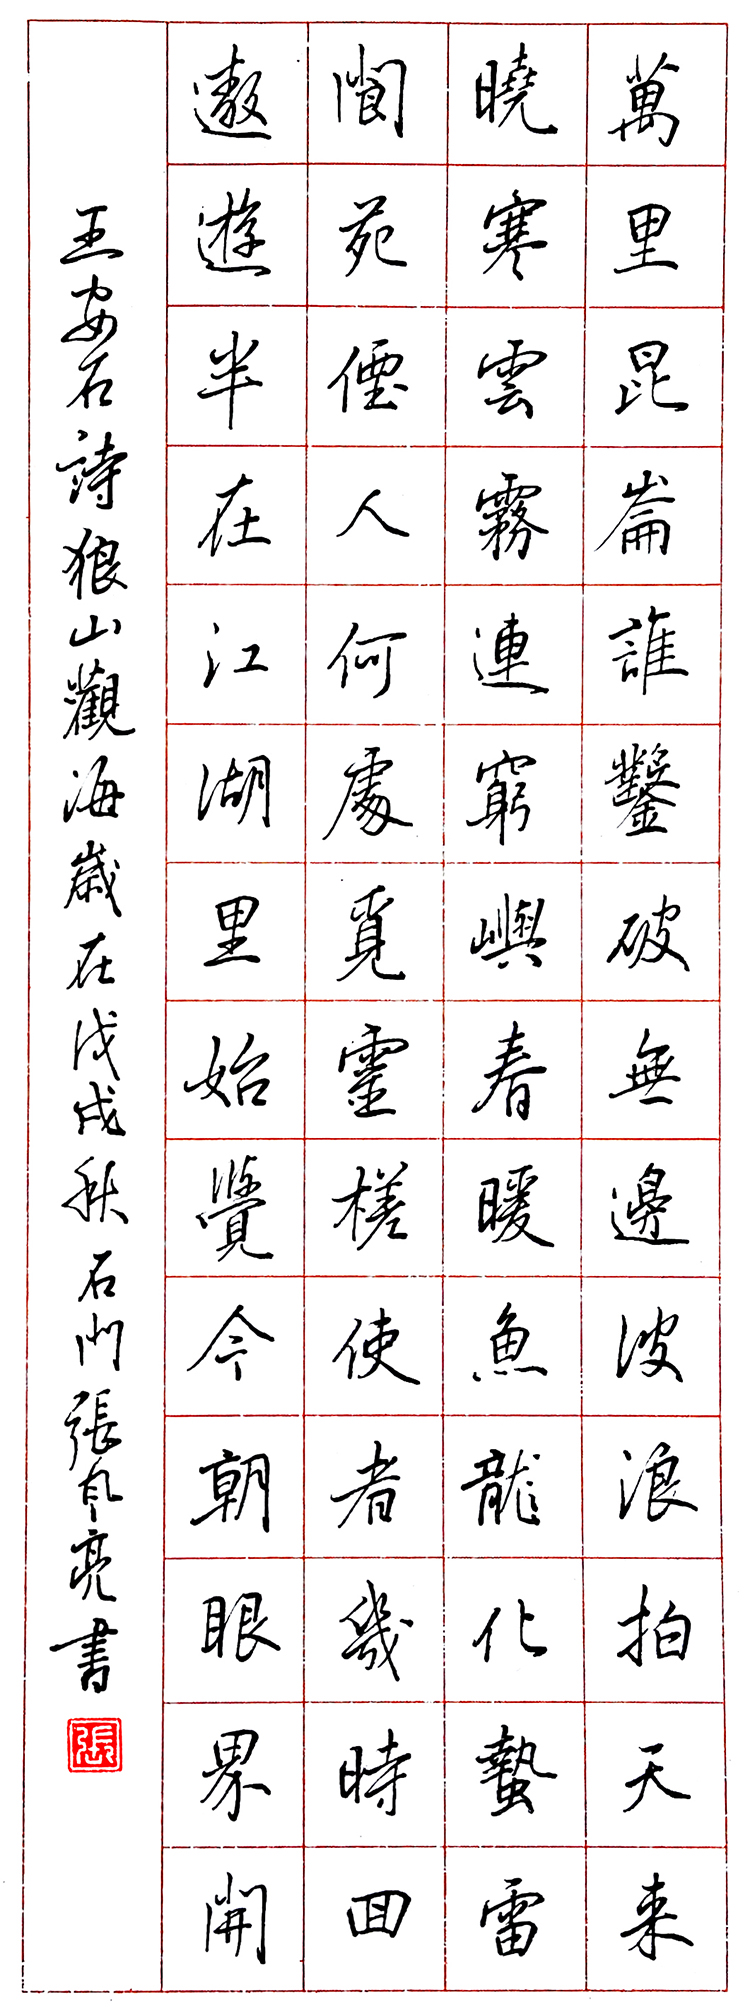 萬里昆崙誰鑿破無邊波浪拍天来
曉寒雲霧連窮嶼春暖魚龍化蟄雷
閬苑僊人何處覓靈槎使者幾時回
遨遊半在江湖里始覺今朝眼界開
王安石詩狼山觀海歲在戊戌秋石門張風亮書
張